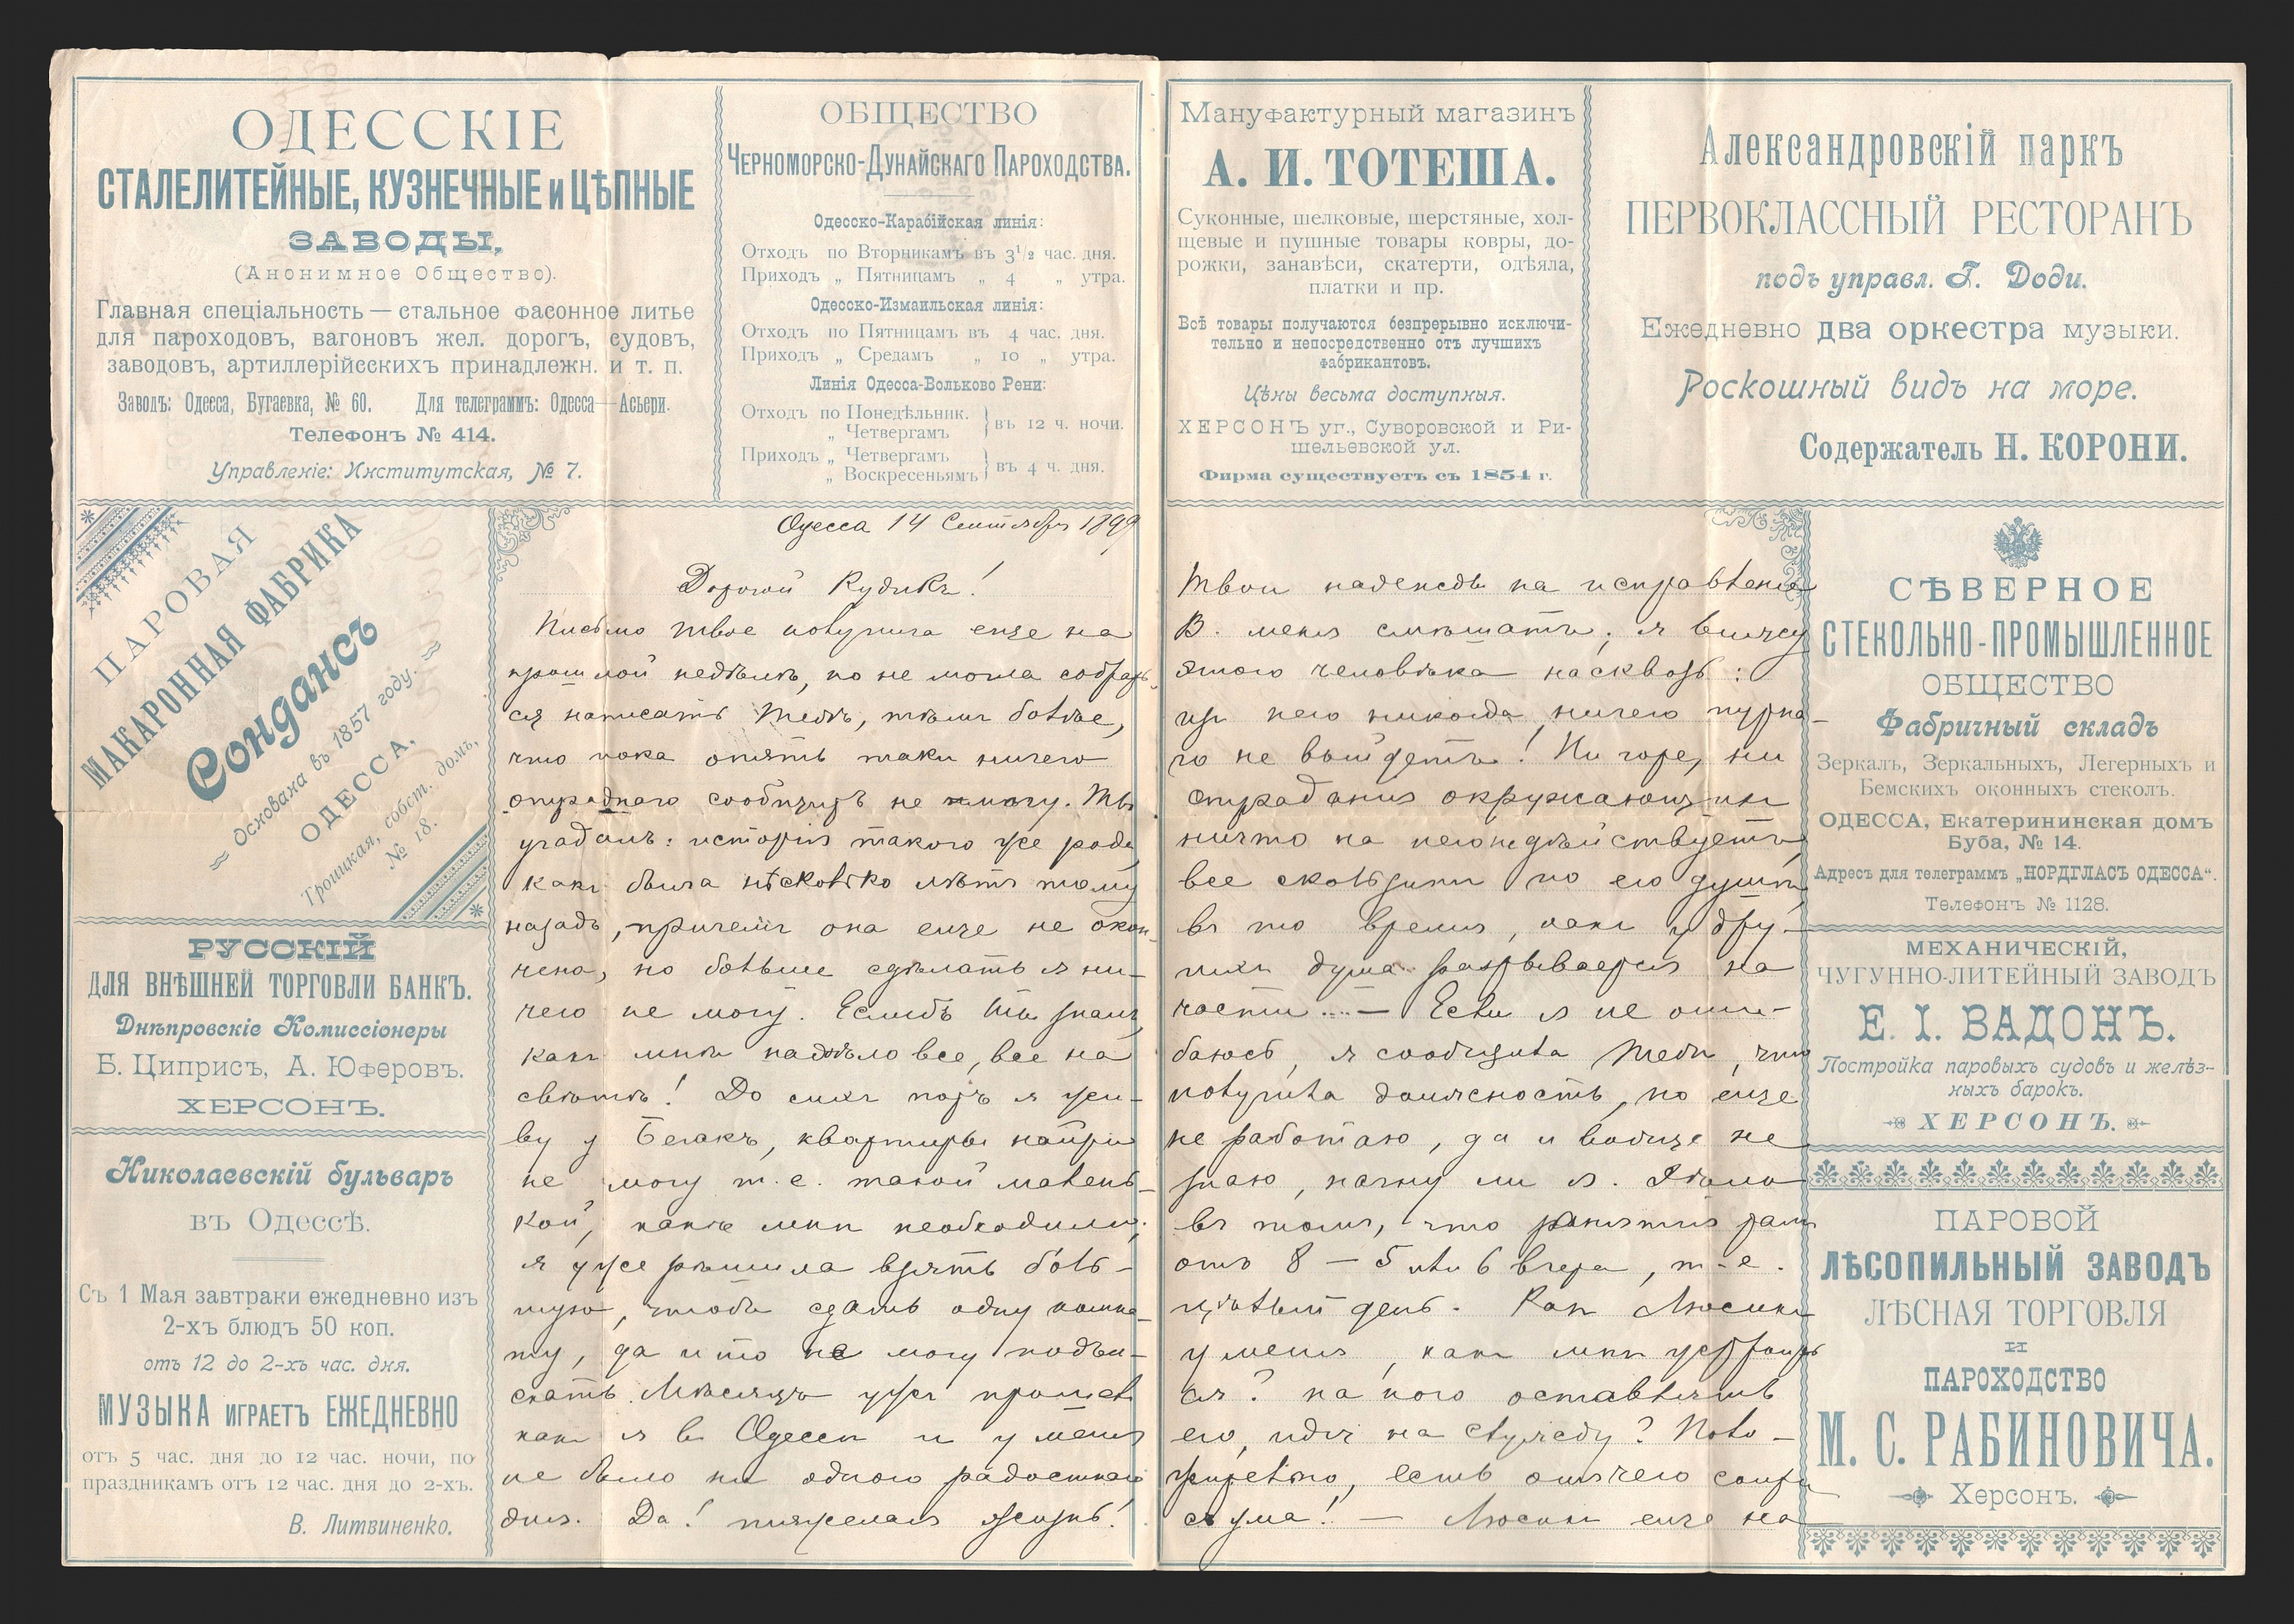 ОДЕССКІЕ
СТАЛЕЛИТЕЙНЫЕ, КУЗНЕЧНЫЕ и ЦѢПНЫЕ
ЗАВОДЫ,
(Анонимное Общество).
Главная спеціальность — стальное фасонное литье
для пароходовъ, вагоновъ жел. дорогъ, судовъ,
заводовъ, артиллерійсскихъ принадлежн. и т. п.
Заводъ: Одесса, Бугаевка, № 60. Для телеграммъ: Одесса—Асьери.
Телефонъ № 414.
Управленіе: Институтская, № 7.
ОБЩЕСТВО
Черноморско-Дунайскаго Пароходства.
Одесско-Карабійская линія:
Отходъ по Вторникамъ въ 3½ час. дня.
Приходъ „ Пятницамъ „ 4 „ утра.
Одесско-Измаильская линія:
Отходъ по Пятницамъ въ 4 час. дня.
Приходъ „ Средамъ „ 10 „ утра.
Линія Одесса-Вольково Рени:
Отходъ по Понедѣльник.
„ Четвергамъ } въ 12 ч. ночи.
Приходъ „ Четвергамъ
„ Воскресеньямъ } въ 4 ч. дня.
Мануфактурный магазинъ
А. И. ТОТЕША.
Суконные, шелковые, шерстяные, хол-
щевые и пушные товары ковры, до-
рожки, занавѣси, скатерти, одѣяла,
платки и пр.
Всѣ товары получаются безпрерывно исключи-
тельно и непосредственно отъ лучшихъ
фабрикантовъ.
Цѣны весьма доступныя.
ХЕРСОНЪ уг., Суворовской и Ри-
шельевской ул.
Фирма существуетъ съ 1854 г.
Александровскій паркъ
ПЕРВОКЛАССНЫЙ РЕСТОРАНЪ
подъ управл. Г. Доди.
Ежедневно два оркестра музыки.
Роскошный видъ на море.
Содержатель Н. КОРОНИ.
ПАРОВАЯ
МАКАРОННАЯ ФАБРИКА
Сондансъ
основана въ 1857 году.
ОДЕССА,
Троицкая, собст. домъ,
№ 18.
РУССКІЙ
ДЛЯ ВНѢШНЕЙ ТОРГОВЛИ БАНКЪ.
Днѣпровскіе Комиссіонеры
Б. Циприсъ, А. Юферовъ.
ХЕРСОНЪ.
Николаевскій бульваръ
въ Одессѣ.
Съ 1 Мая завтраки ежедневно изъ
2-хъ блюдъ 50 коп.
отъ 12 до 2-хъ час. дня.
МУЗЫКА ИГРАЕТЪ ЕЖЕДНЕВНО
отъ 5 час. дня до 12 час. ночи, по
праздникамъ отъ 12 час. дня до 2-хъ.
В. Литвиненко.
Одесса 14 Сентября 1899
Дорогой Рудикъ!
Письмо твое получила еще на
прошлой недѣлѣ, но не могла собрать-
ся написать тебѣ, тѣмъ болѣе,
что пока опять таки ничего
отраднаго сообщить не могу. Ты
угадалъ: исторія такого же рода,
какъ была нѣсколько лѣтъ тому
назадъ, причемъ она еще не окон-
чена, но больше сдѣлать я ни-
чего не могу. Еслибъ ты зналъ,
какъ мнѣ надоѣло все, все на
свѣтѣ! До сихъ поръ я жи-
ву у Белакъ, квартиры найти
не могу т. е. такой малень-
кой, какъ мнѣ необходимо;
я уже рѣшила взять боль-
шую, чтобы сдать одну комна-
ту, да и то не могу подъи-
скать. Мѣсяцъ уже прошелъ
какъ я въ Одессѣ и у меня
не было ни одного радостнаго
дня. Да! тяжелая жизнь!
Твои надежды на исправленіе
В. меня смѣшатъ; я вижу
этого человѣка насквозь:
изъ него никогда ничего путна-
го не выйдетъ! Ни горе, ни
страданія окружающихъ
ничто на него не дѣйствуетъ,
все скользитъ по его душѣ,
въ то время, какъ у дру-
гихъ душа разрывается на
части.... — Если я не оши-
баюсь, я сообщила тебѣ, что
получила должность, но еще
не работаю, да и вообще не
знаю, начну ли я. Дѣло
въ томъ, что занятія тамъ
отъ 8 — 5 или 6 вечера, т-е.
цѣлый день. Какъ Люсикъ
у меня, какъ мнѣ устроить
ся? на кого оставлять
его, идя на службу? Поло-
жительно, есть отъ чего сойти
съ ума! — Люсикъ еще на
СѢВЕРНОЕ
СТЕКОЛЬНО-ПРОМЫШЛЕННОЕ
ОБЩЕСТВО
Фабричный складъ
Зеркалъ, Зеркальныхъ, Легерныхъ и
Бемскихъ оконныхъ стеколъ.
ОДЕССА, Екатерининская домъ
Буба, № 14.
Адресъ для телеграммъ „НОРДГЛАСЪ ОДЕССА“.
Телефонъ № 1128.
МЕХАНИЧЕСКІЙ,
ЧУГУННО-ЛИТЕЙНЫЙ ЗАВОДЪ
Е. І. ВАДОНЪ.
Постройка паровыхъ судовъ и желѣз-
ныхъ барокъ.
ХЕРСОНЪ.
ПАРОВОЙ
ЛѢСОПИЛЬНЫЙ ЗАВОДЪ
ЛѢСНАЯ ТОРГОВЛЯ
И
ПАРОХОДСТВО
М. С. РАБИНОВИЧА.
Херсонъ.